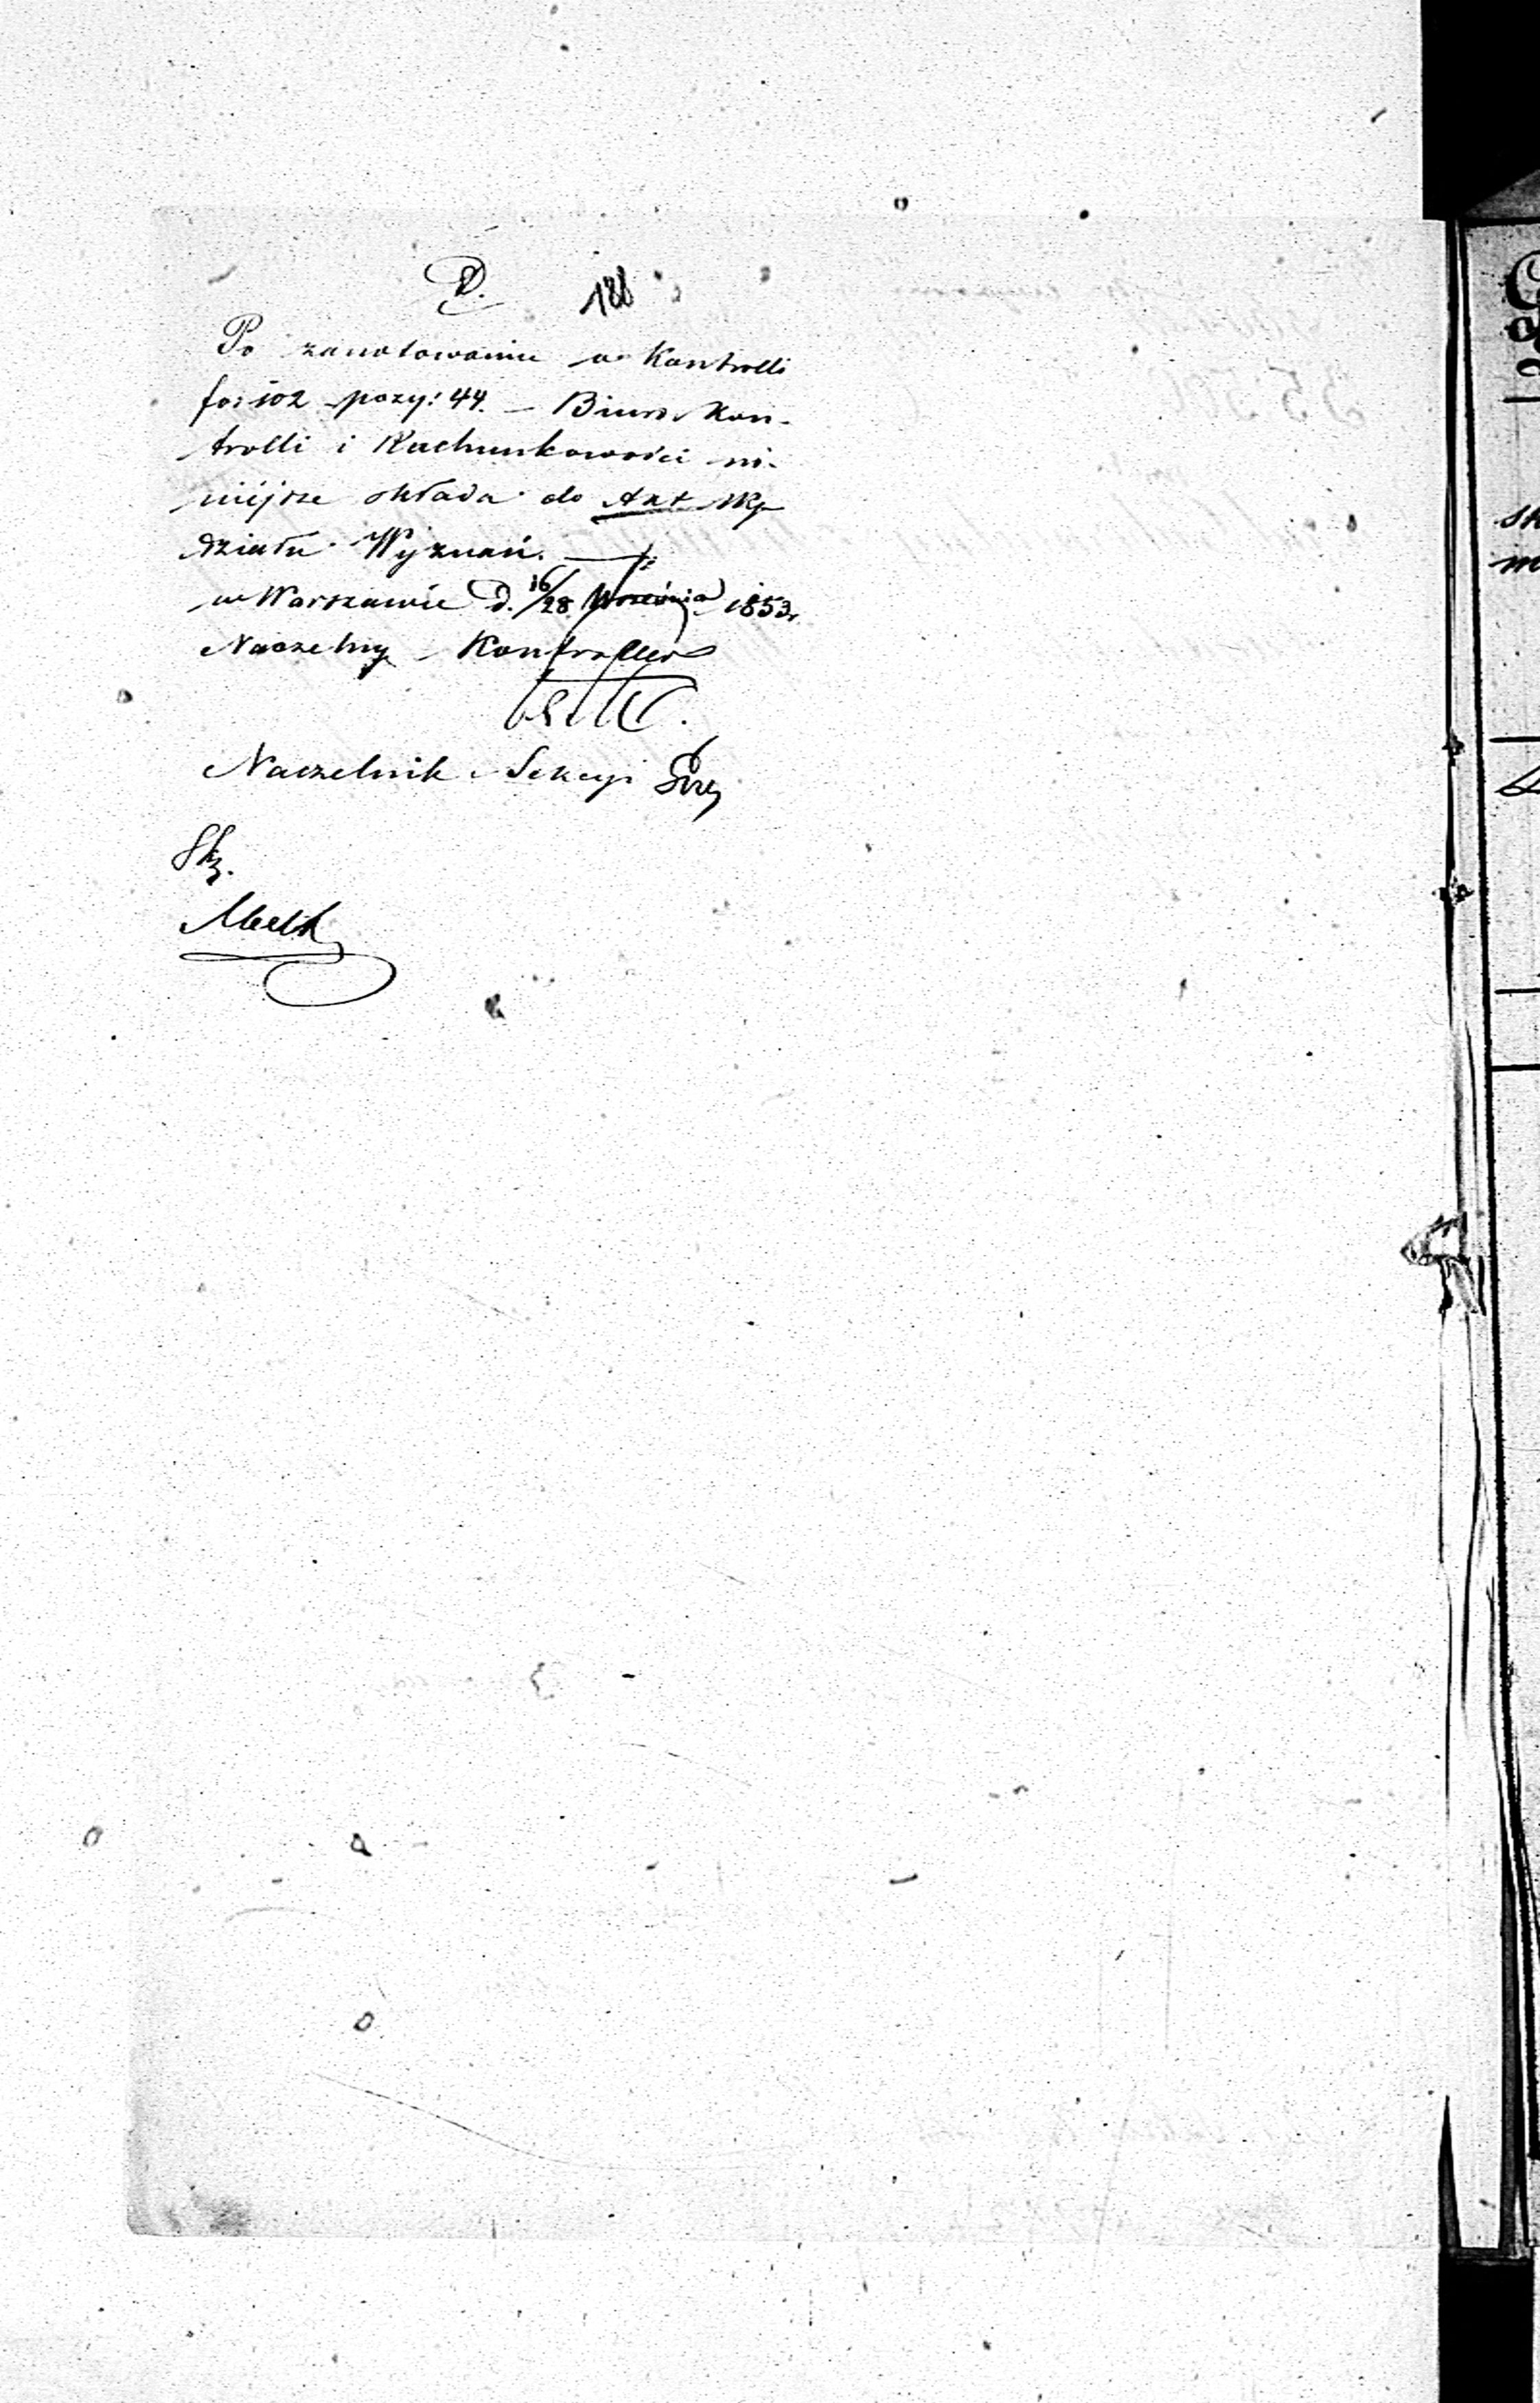 D. 188
Po zanotowaniu w Kontrolli
fo: 102 pozy: 44. – Biuro Kon-
trolli i Rachunkowości ni-
niéjsze składa do Akt Wy-
działu Wyznań. —
w Warszawie D. 16/28 Września 1853 r.
Naczelny Kontroller
Naczelnik Sekcyi